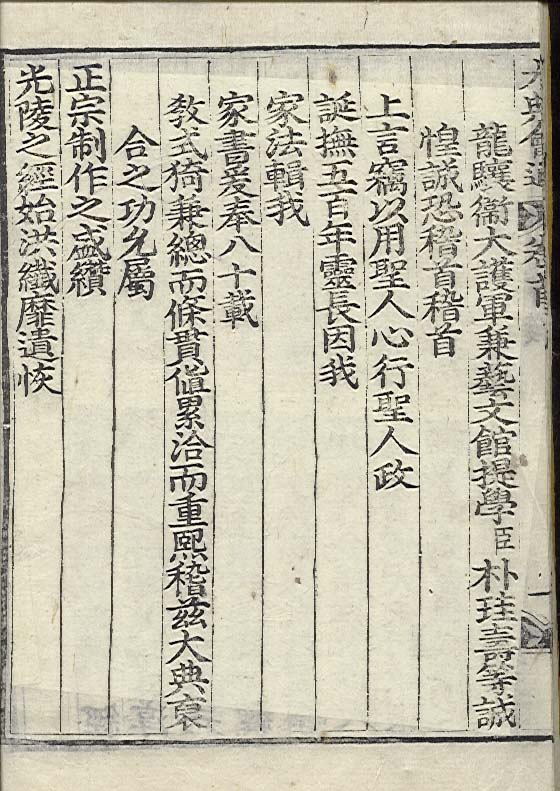 大典會通 卷首
龍驤衛大護軍兼藝文館提學臣朴珪壽等誠
惶誠恐稽首稽首
上言竊以用聖人心行聖人政
誕撫五百年靈長因我
家法輯我
家書爰奉八十載
敎式猗兼總而條貫値累洽而重熙稽玆大典裒
合之功允屬
正宗制作之盛纘
光陵之經始洪纖靡遺恢